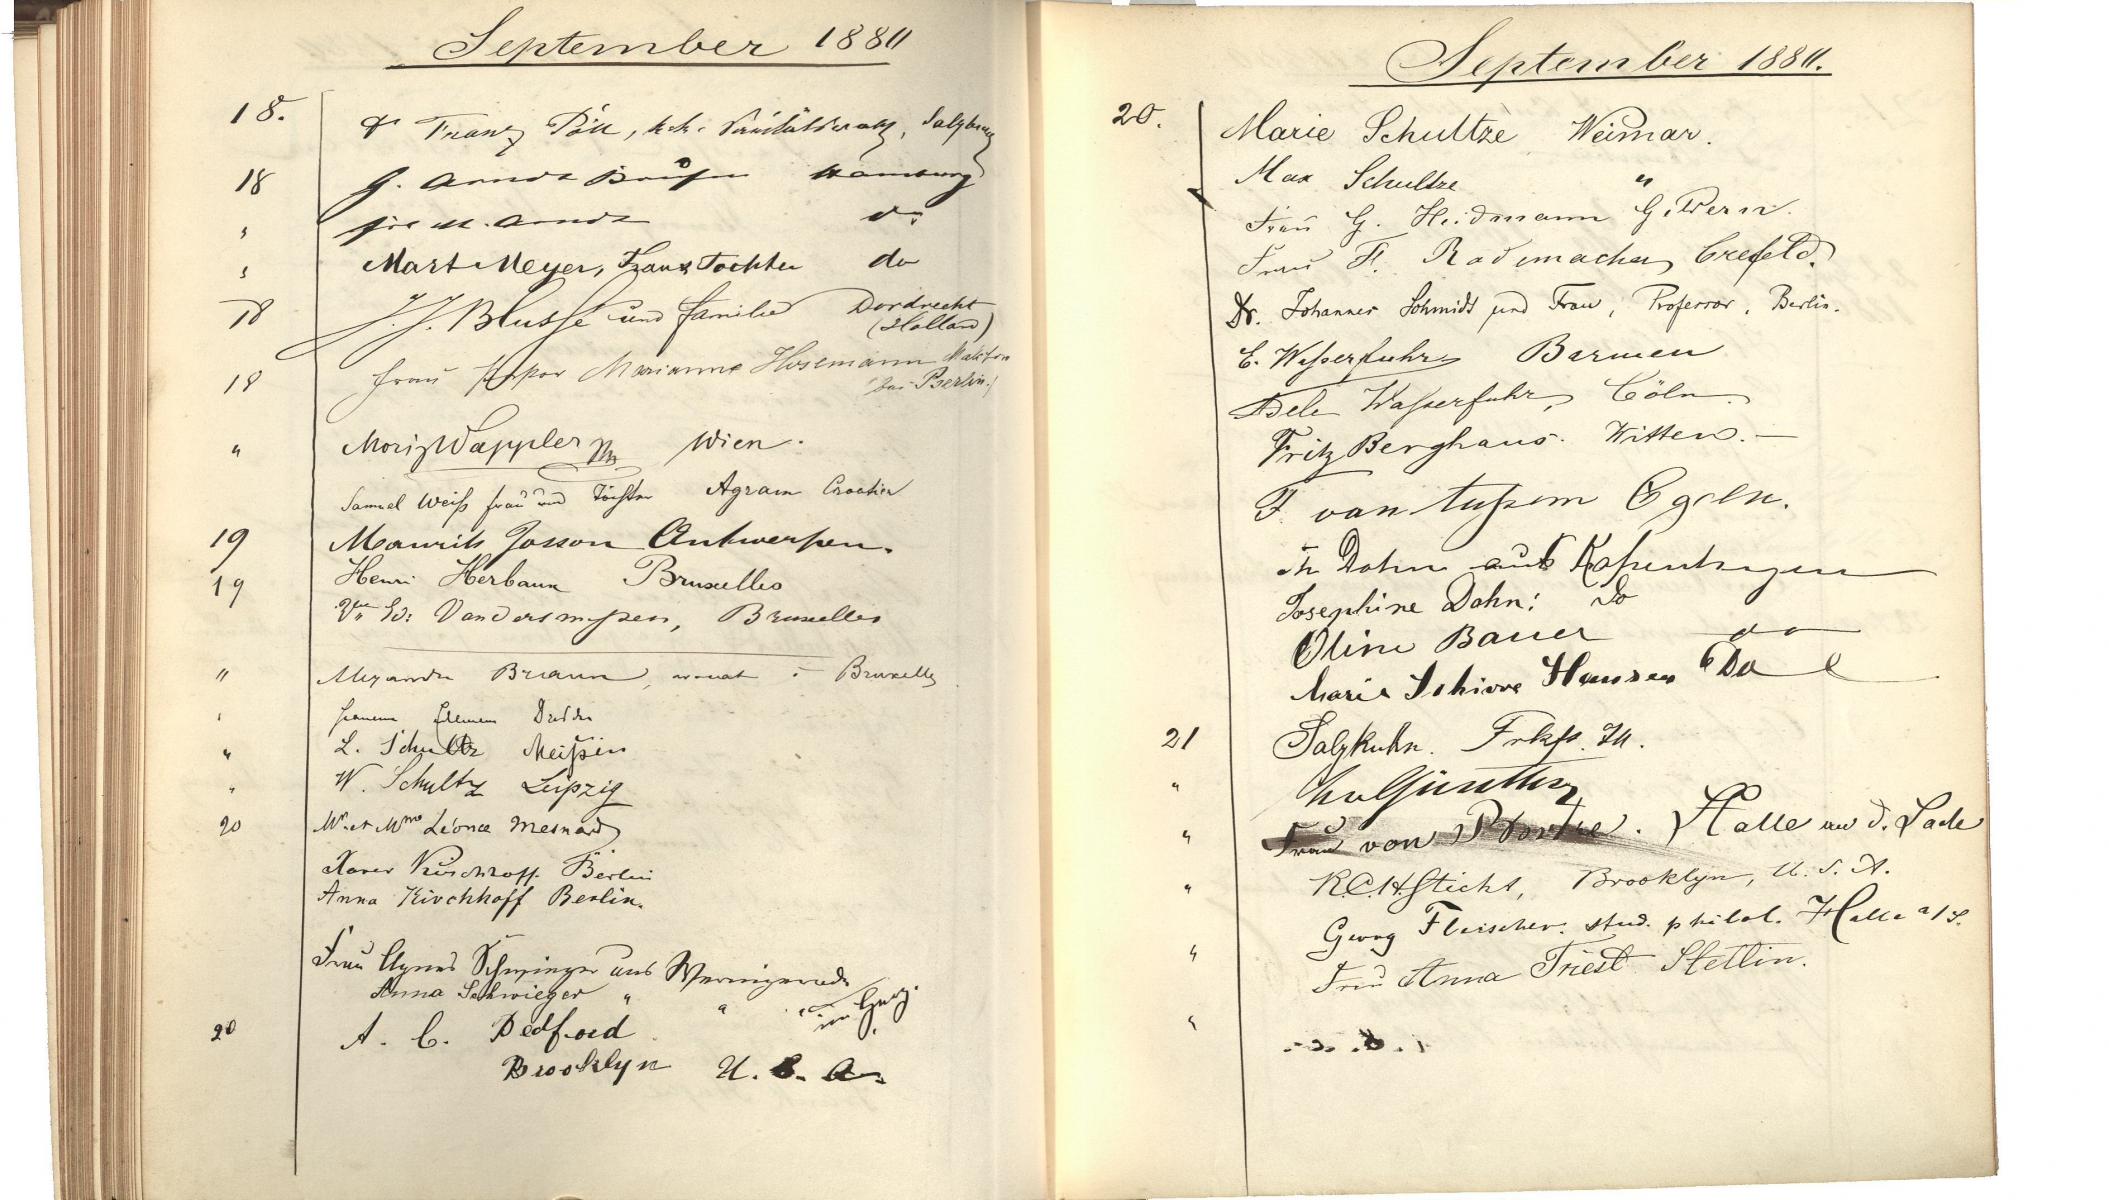 September 1880
18. Dr Franz Pöll, k.k. Sanitätsrath, Salzburg
18 G. Arndt Hamburg
" M. Arndt do
" Mart Meyer, Frau & Tochter do
18 J. J. Blussé und Familie Dordrecht
(Holland)
18 Frau Pastor Marianne Hosemann
bei Berlin.
" Moriz Wappler Wien.
Samuel Weiß Frau und Tochter Agram Croatien
19 Maurits Josson Antwerpen.
19 Henri Herbaux Bruxelles
Vve Ed: Vandersmissen, Bruxelles
" Alexandre Braun, avocat à Bruxelles
"
" L. Schultz Meißen
" W. Schultz Leipzig
20 Mr. et Mme Léonce Mesnard
Xaver Kirchhoff Berlin
Anna Kirchhoff Berlin.
Frau Agnes Schwieger aus Wernigerode
Anna Schwieger " " " im Harz.
20 A. C. Bedford
Brooklyn U. S. A.
September 1880.
20. Marie Schultze Weimar.
Max Schultze "
Frau G. Heidmann
Frau F. Rademacher Crefeld.
Dr. Johannes Schmidt und Frau, Professor, Berlin.
E. Waßerfuhr Barmen
Adele Waßerfuhr, Cöln.
Fritz Berghaus. Witten. —
F. van Tußem Egeln.
Th Dohn aus Kopenhagen
Josephine Dohn: Do
Oline Bauer do
Marie Schiwe Hansen Do
21 Salzkuhn. Frkf. M.
" Günther
" Frau von Halle an d. Saale
" R.C.H. Sticht, Brooklyn, U. S. A.
Georg Fleischer. stud. philol. Halle a/S.
" Frau Anna Triest Stettin.
"